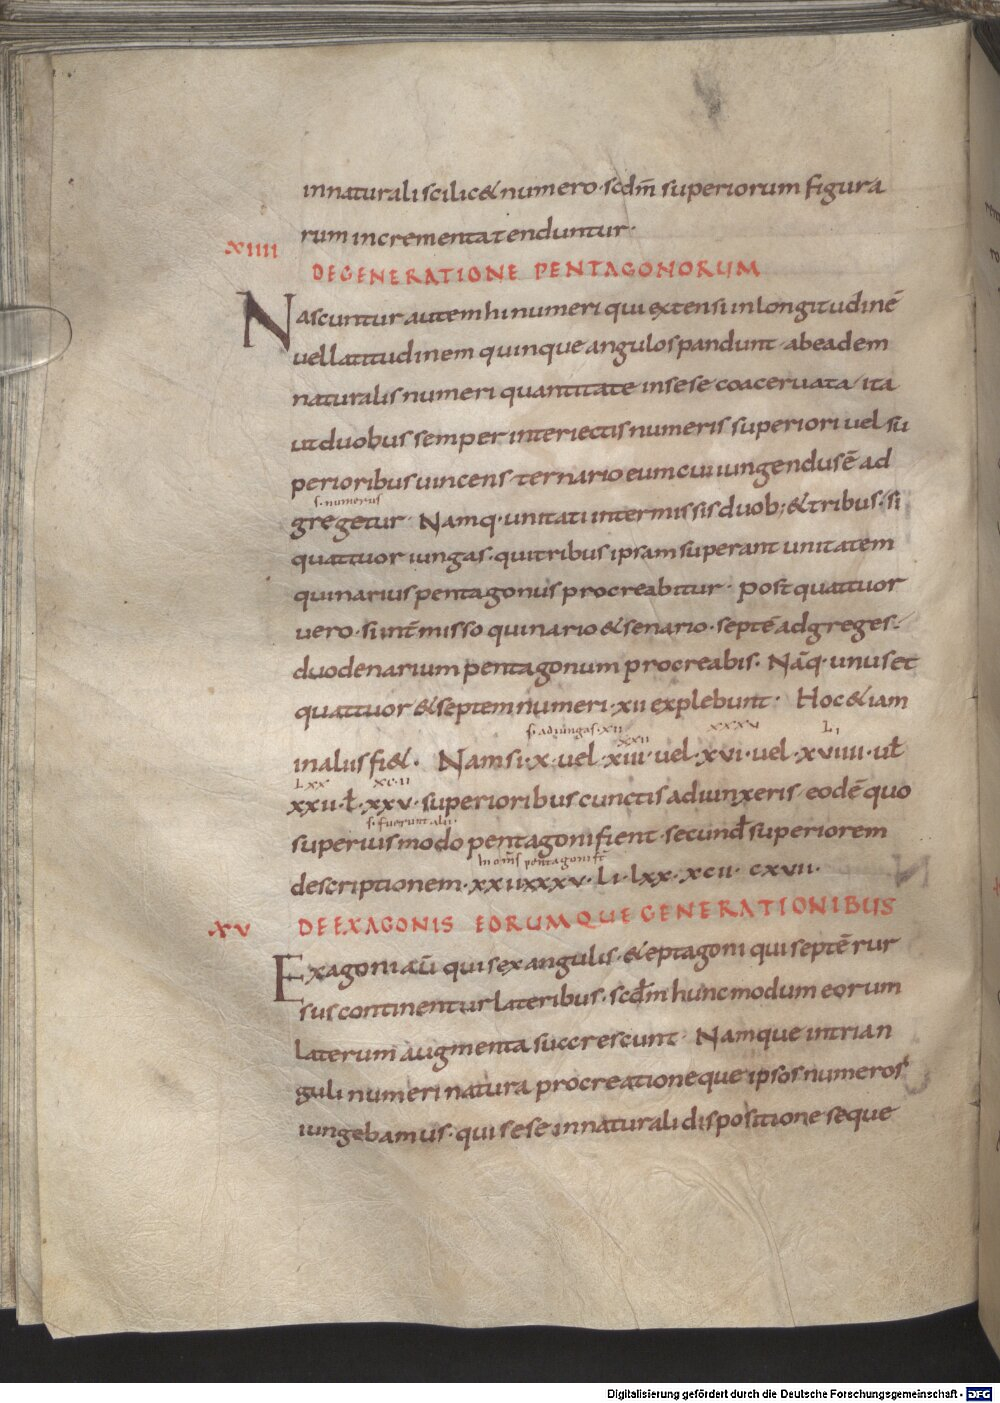 in naturali scilic& numero · scdm̄ superiorum figura
rum incrementa tenduntur ·
XIIII
DE GENERATIONE PENTAGONORUM
Nascuntur autem hi numeri qui extensi in longitudinē
uel latitudinem quinque angulos pandunt · ab eadem
naturalis numeri quantitate in sese coaceruata · ita
ut duobus semper interiectis numeris superiori uel su
perioribus uincens · ternario eum cui iungendus ē ad
s. numerus
gregetur · Namq · unitati intermissis duob; & tribus · si
quattuor iungas · qui tribus ipsam superant unitatem
quinarius pentagonus procreabitur · post quattuor
vero · si int̄misso quinario & senario · septē adgreges ·
duodenarium pentagonum procreabis · Nāq · unus et
quattuor & septem numeri · xii explebunt · Hoc & iam
s. adiungas · xii xxii xxxv Li
in aliis fi& · Nam si · x · uel · xiii · uel · xvi · uel · xviiii · ul̄
Lxx xc·ii
xxii · ł · xxv · superioribus cunctis adiunxeris · eodē quo
s. fuerunt alii
superius modo pentagoni fient · secund̄ superiorem
in oīms pentagoni st̄
descriptionem · xxii xxxv · Li · lxx · xcii · cxvii ·
XV
DE EXAGONIS EORUMQUE GENERATIONIBUS
Exagoni aū qui sex angulis · & eptagoni qui septē rur
sus continentur lateribus · scd̄m hunc modum eorum
laterum augmenta succrescunt · Namque in trian
guli numeri natura procreationeque ipsos numeros
iungebamus · qui sese in naturali dispositione seque
Digitalisierung gefördert durch die Deutsche Forschungsgemeinschaft - DFG